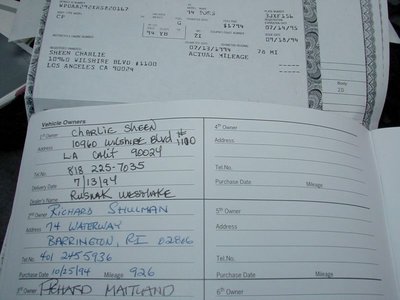 WP0AA2921RS820167
CP
94 PORS
G
$5794
3JXF156
07/14/95
94 YB
ZI
07/13/1994
09/18/94
ACTUAL MILEAGE
70 MI
SHEEN CHARLIE
10960 WILSHIRE BLVD #1100
LOS ANGELES CA 90024
Vehicle Owners
1st Owner CHARLIE SHEEN
Address 10960 WILSHIRE Blvd #1100
LA CALIF 90024
Tel.No. 818 225-7035
Delivery Date 7/13/94
Dealer's Name RUSNAK WESTLAKE
2nd Owner RICHARD SHULMAN
Address 74 WATERWAY
BARRINGTON, RI 02806
Tel.No. 401 2455936
Purchase Date 10/25/94 Mileage 926
3rd Owner RICHARD MAITLAND
4th Owner
Address
Tel.No.
Purchase Date Mileage
5th Owner
Address
Tel.No.
Purchase Date Mileage
6th Owner